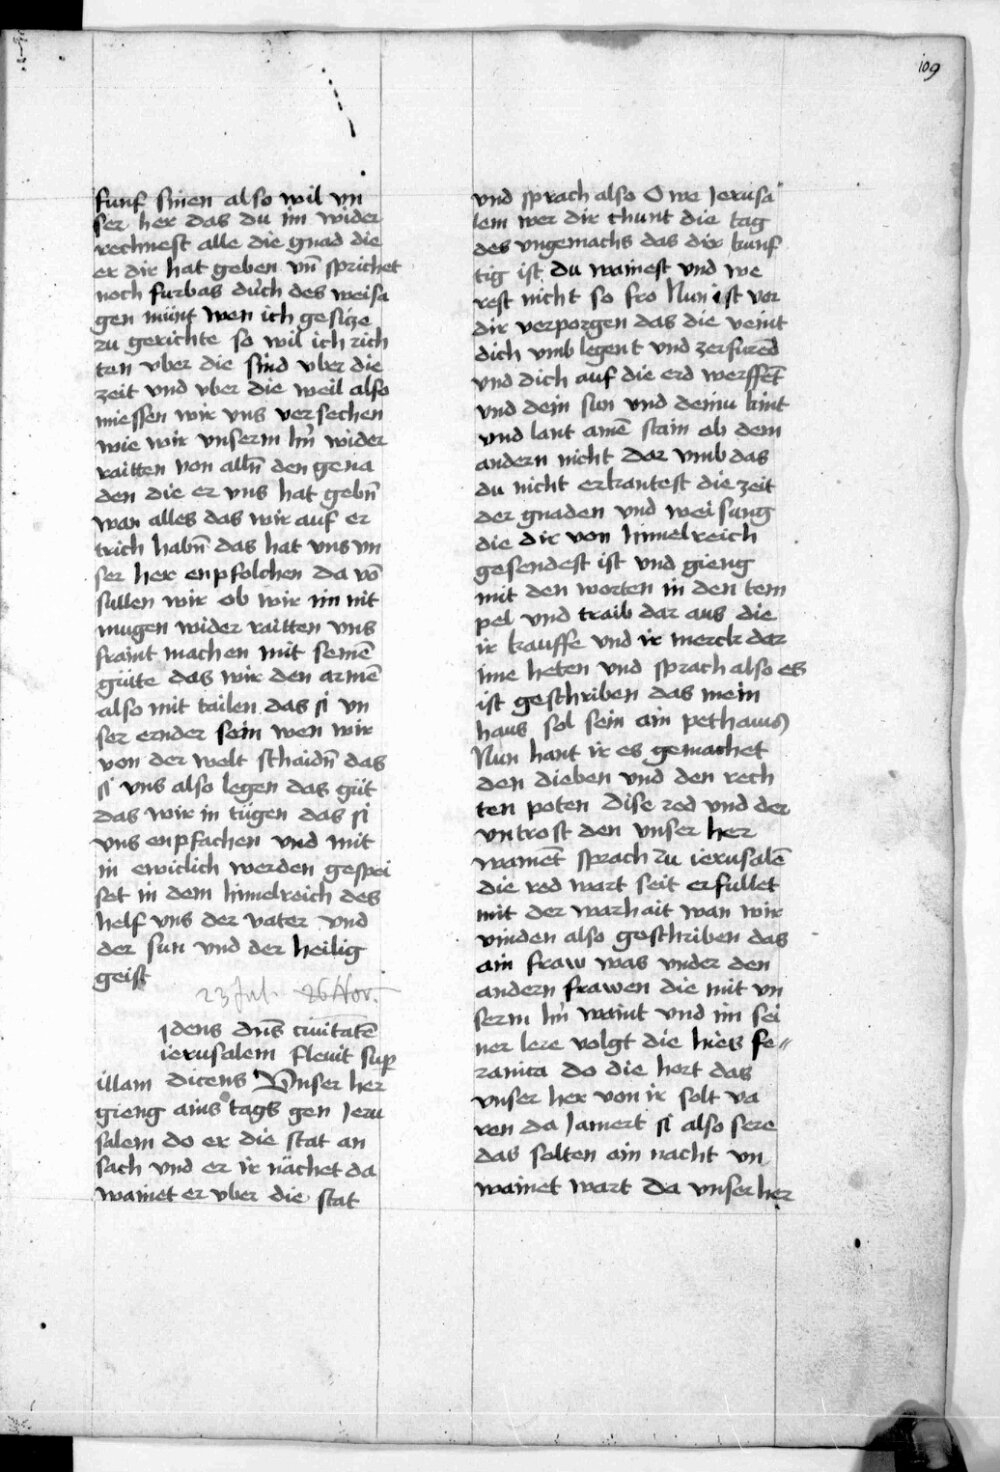 109
funf sinen also wil vn
ser her das du im wider
rechnest alle die gnad die
er dir hat geben vn̄ sprichet
noch furbas durch des weisa
gen munt wen ich gesicze
zu gerichte so wil ich rich
ten vber die sind vber die
zeit vnd vber die weil also
miessen wir vns versechen
wie wir vnserm hn̄ wider
raitten von alln̄ den gena
den die er vns hat gebn̄
wan alles das wir auf er
trich habn̄ das hat vns vn
ser her enpfolchen da vō
sullen wir ob wir im nit
mugen wider raitten vns
fraint machen mit seinē
güte das wir den armē
also mit tailen das si vn
ser ernder sein wen wir
von der welt schaidn̄ das
si vns also legen das güt
das wir in tügen das si
vns enpfachen vnd mit
in ewiclich werden gespei
set in dem himelreich des
helf vns der vater vnd
der sun vnd der heilig
geist
23 Jul. 26 Nov.
idens dn̄s ciuitatē
ierusalem fleuit sup
illam dicens Vnser her
gieng ains tags gen Jeru
salem do er die stat an
sach vnd er ir nächet da
wainet er vber die stat
vnd sprach also O we Jerusa
lem wer dir chunt die tag
des vngemachs das dir kunf
tig ist du wainest vnd we
rest nicht so fro Nun ist vor
dir verporgen das die veint
dich vmb legent vnd zerfurend
vnd dich auf die erd werffēt
vnd dein sun vnd deinu kint
vnd lant ainē stain ob dem
andern nicht dar vmb das
du nicht erkantest die zeit
der gnaden vnd weisung
die dir von himelreich
gesendest ist vnd gieng
mit den worten in den tem
pel vnd traib dar aus die
ir kauffe vnd ir merck dar
inne heten vnd sprach also es
ist geschriben das mein
haus sol sein ain pethaus
Nun hant ir es gemachet
den dieben vnd den rech
ten poten dise red vnd der
vntrost den vnser her
wainēt sprach zu ierusalē
die red wart seit erfullet
mit der warhait wan wir
vinden also geschriben das
ain fraw was vnder den
andern frawen die mit vn
serm hn̄ waint vnd im sei
ner lere volgt die hies fe
ranica do die hort das
vnser her von ir solt va
ren da Jamert si also sere
das selten ain nacht vn
wainet wart da vnser her